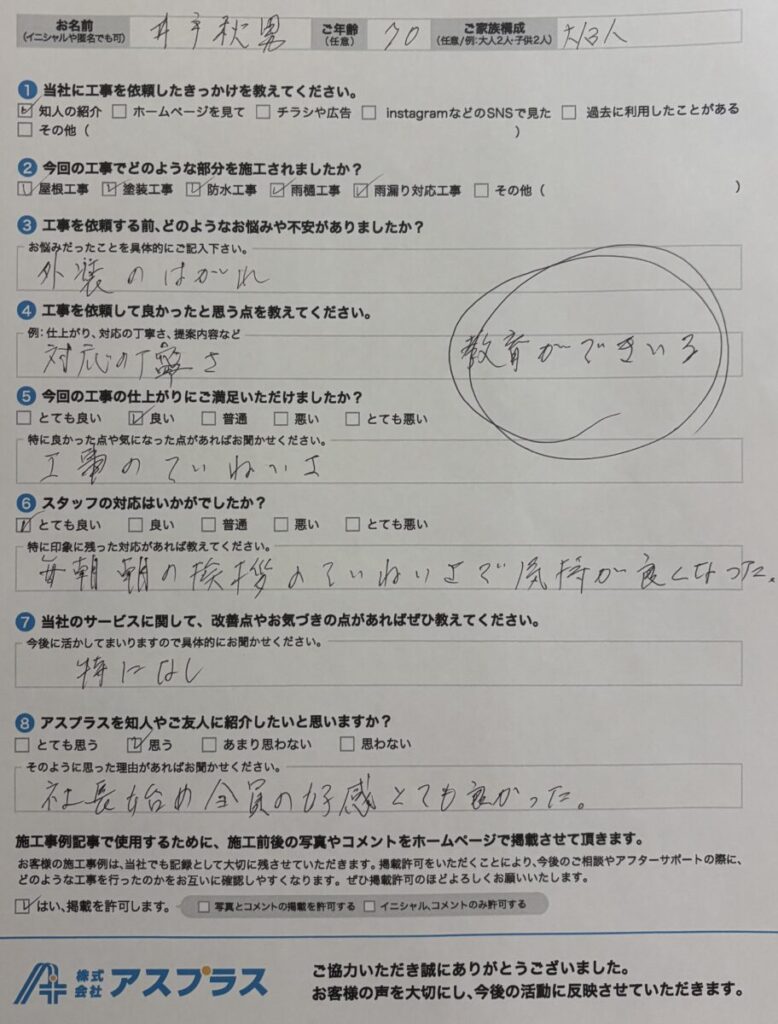 お名前
(イニシャルや匿名でも可)
井戸秋男
ご年齢
(任意)
70
ご家族構成
(任意/例:大人2人・子供2人)
大人3人
1 当社に工事を依頼したきっかけを教えてください。
☑ 知人の紹介 □ ホームページを見て □ チラシや広告 □ instagramなどのSNSで見た □ 過去に利用したことがある
□ その他 ( )
2 今回の工事でどのような部分を施工されましたか?
☑ 屋根工事 ☑ 塗装工事 ☑ 防水工事 ☑ 雨樋工事 ☑ 雨漏り対応工事 □ その他 ( )
3 工事を依頼する前、どのようなお悩みや不安がありましたか?
お悩みだったことを具体的にご記入下さい。
外装のはがれ
4 工事を依頼して良かったと思う点を教えてください。
例:仕上がり、対応の丁寧さ、提案内容など
対応の丁寧さ 教育ができいる
5 今回の工事の仕上がりにご満足いただけましたか?
□ とても良い ☑ 良い □ 普通 □ 悪い □ とても悪い
特に良かった点や気になった点があればお聞かせください。
工事のていねいさ
6 スタッフの対応はいかがでしたか?
☑ とても良い □ 良い □ 普通 □ 悪い □ とても悪い
特に印象に残った対応があれば教えてください。
毎朝朝の挨拶のていねいさで気持が良くなった。
7 当社のサービスに関して、改善点やお気づきの点があればぜひ教えてください。
今後に活かしてまいりますので具体的にお聞かせください。
特になし
8 アスプラスを知人やご友人に紹介したいと思いますか?
□ とても思う ☑ 思う □ あまり思わない □ 思わない
そのように思った理由があればお聞かせください。
社長始め全員の好感とても良かった。
施工事例記事で使用するために、施工前後の写真やコメントをホームページで掲載させて頂きます。
お客様の施工事例は、当社でも記録として大切に残させていただきます。掲載許可をいただくことにより、今後のご相談やアフターサポートの際に、
どのような工事を行ったのかをお互いに確認しやすくなります。ぜひ掲載許可のほどよろしくお願いいたします。
☑ はい、掲載を許可します。 □ 写真とコメントの掲載を許可する □ イニシャル、コメントのみ許可する
株式会社 アスプラス
ご協力いただき誠にありがとうございました。
お客様の声を大切にし、今後の活動に反映させていただきます。